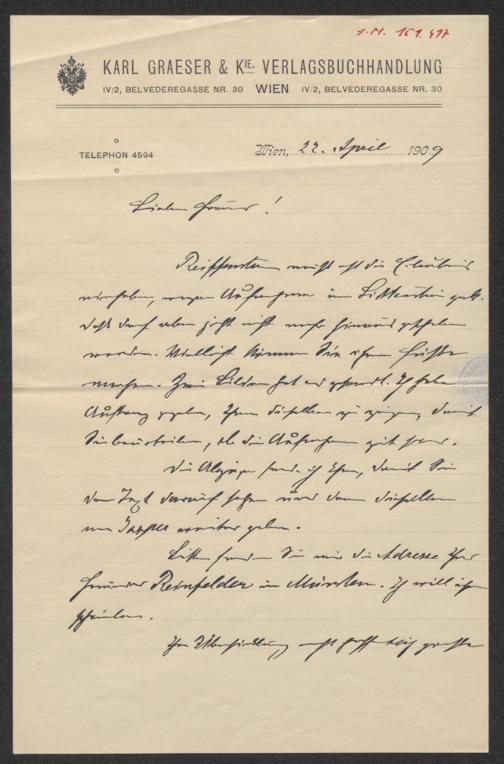 I.N. 151.417
KARL GRAESER & KIE. VERLAGSBUCHHANDLUNG
IV/2, BELVEDEREGASSE NR. 30 WIEN IV/2, BELVEDEREGASSE NR. 30
TELEPHON 4594
Wien, 22. April 1909
Lieber Freund!
Reiffenstein muß erst die Erlaubnis
einholen, wegen Aufnahmen im
Daß darf aber jetzt nicht mehr hinaus geschoben
werden. Vielleicht können Sie ihm
machen. Zwei Bilder hat er gesandt. Ich habe
Auftrag gegeben, Ihnen dieselben zu zeigen, damit
Sie beurteilen, ob die Aufnahmen gut sind.
Die Abzüge sende ich Ihnen, damit Sie
den Text darauf sehen und dann dieselben
an weiter geben.
Bitte senden Sie mir die Adresse Ihres
Freundes Reinfelder in München. Ich will ihm
schreiben.
Ihre